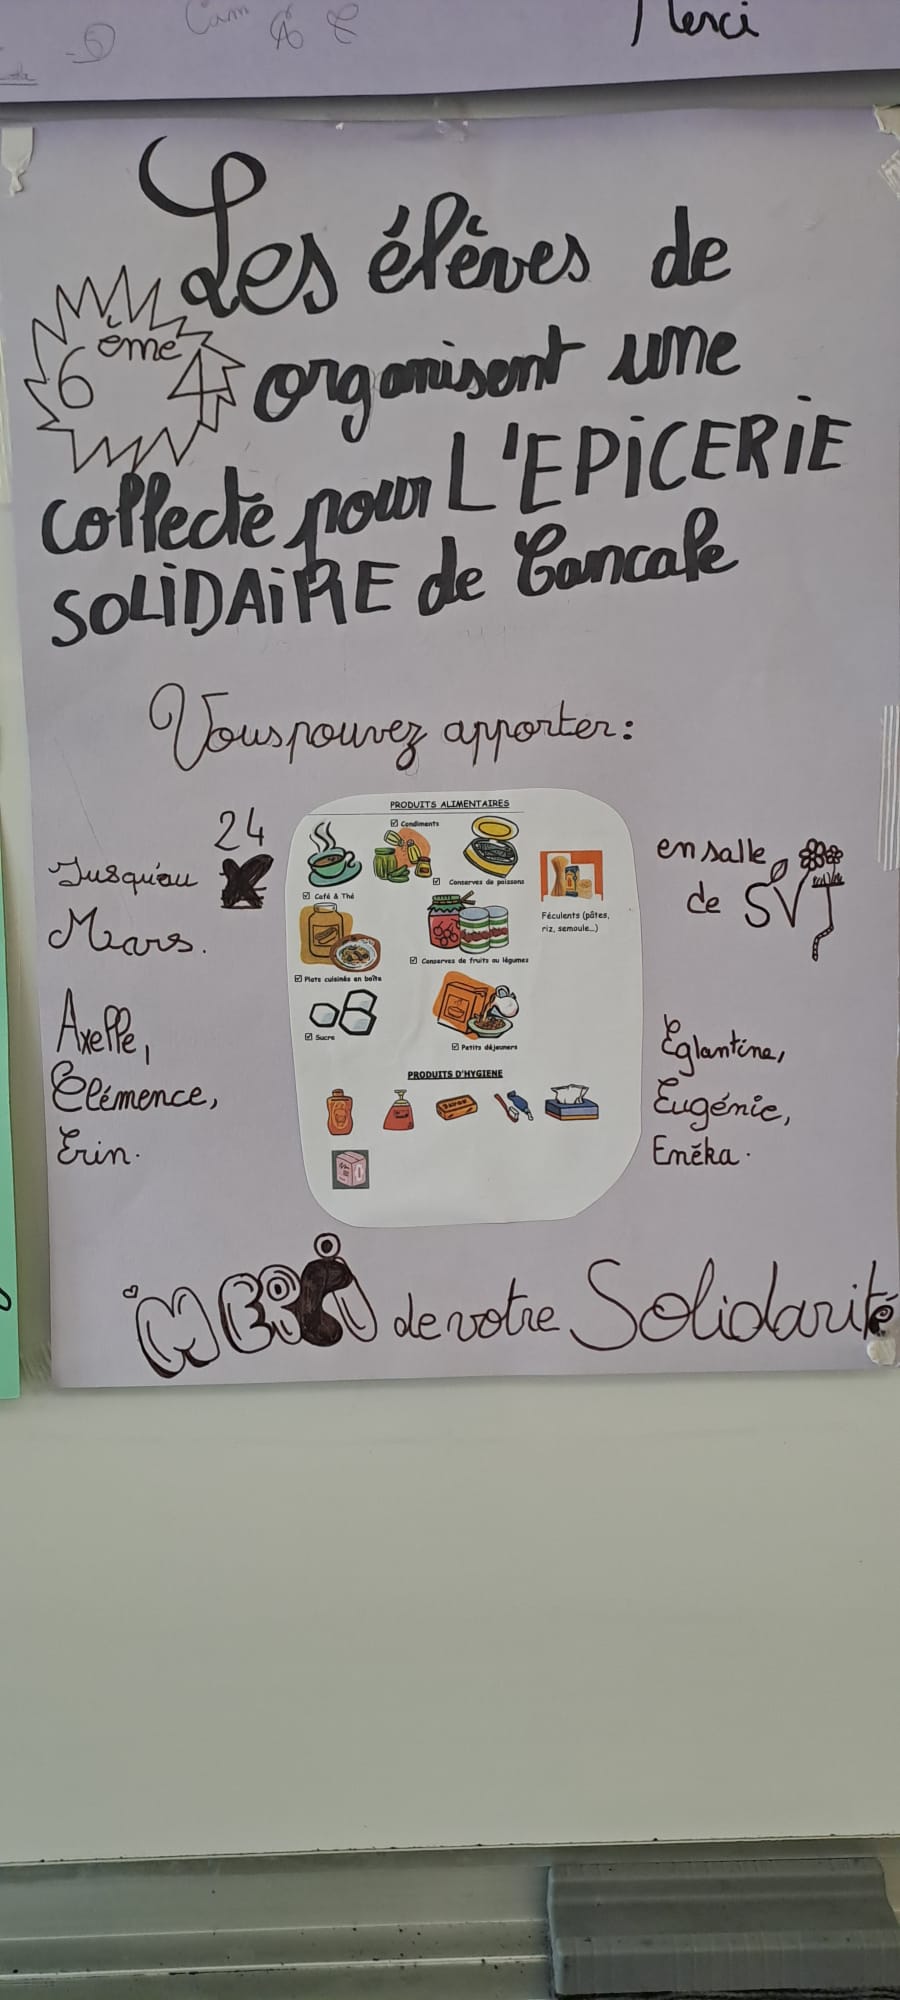 Merci
Les élèves de
6ème 4 organisent une
collecte pour L'EPiCERiE
SOLiDAiRE de Cancale
Vous pouvez apporter :
24
Jusqu'au
Mars.
PRODUITS ALIMENTAIRES
Condiments
Café & Thé
Conserves de poissons
Féculents (pâtes,
riz, semoule...)
Conserves de fruits ou légumes
Plats cuisinés en boîte
Sucre
Petits déjeuners
PRODUITS D'HYGIENE
en salle
de SVT
Axelle,
Clémence,
Erin.
Eglantine,
Eugénie,
Enéka.
MERCi de votre Solidarité